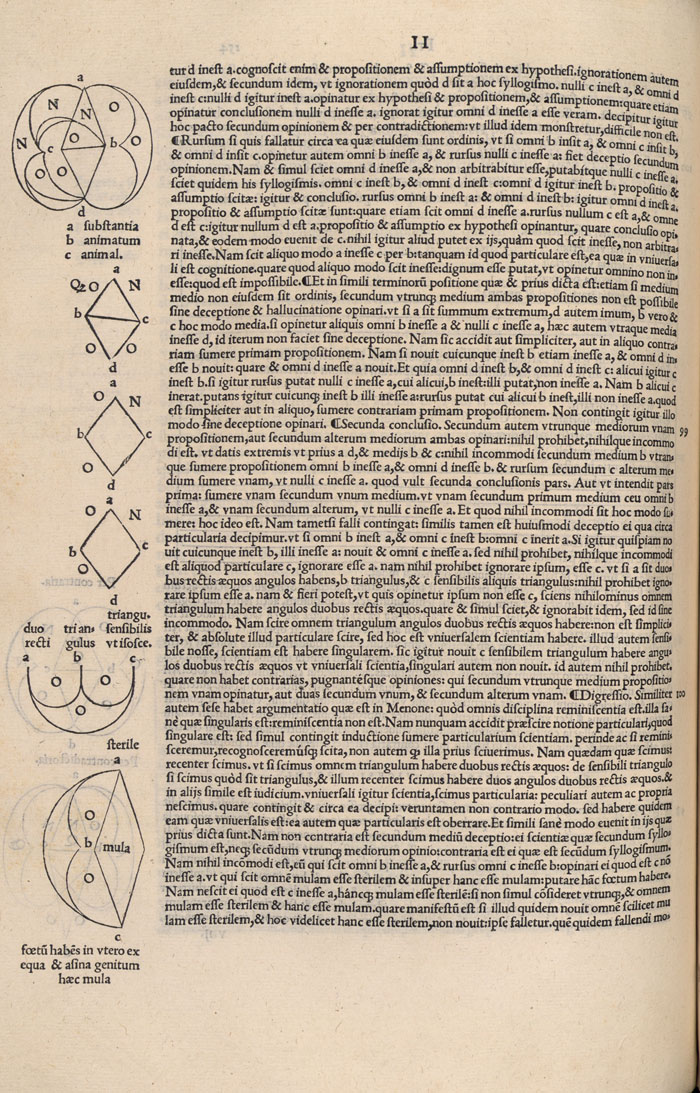 II
tur d inest a.cognoscit enim & propositionem & assumptionem ex hypothesi.ignorationem autem
eiusdem,& secundum idem, vt ignorationem quòd d sit a hoc syllogismo. nulli c inest a, & omni d
inest c:nulli d igitur inest a.opinatur ex hypothesi & propositionem,& assumptionem:quare etiam
opinatur conclusionem nulli d inesse a. ignorat igitur omni d inesse a esse veram. decipitur igitur
hoc pacto secundum opinionem & per contradictionem:vt illud idem monstretur,difficile non est.
¶Rursum si quis fallatur circa ea quæ eiusdem sunt ordinis, vt si omni b insit a, & omni c insit b,
& omni d insit c.opinetur autem omni b inesse a, & rursus nulli c inesse a: fiet deceptio secundum
opinionem.Nam & simul sciet omni d inesse a,& non arbitrabitur esse,putabitque nulli c inesse a.
sciet quidem his syllogismis. omni c inest b, & omni d inest c:omni d igitur inest b. propositio &
assumptio scitæ: igitur & conclusio. rursus omni b inest a: & omni d inest b: igitur omni d inest a.
propositio & assumptio scitæ sunt:quare etiam scit omni d inesse a.rursus nullum c est a,& omne
d est c:igitur nullum d est a.propositio & assumptio ex hypothesi opinantur, quare conclusio opi-
nata,& eodem modo euenit de c.nihil igitur aliud putet ex ijs,quàm quod scit inesse,non arbitra-
ri inesse.Nam scit aliquo modo a inesse c per b:tanquam id quod particulare est,ea quæ in vniuersa
li est cognitione.quare quod aliquo modo scit inesse:dignum esse putat,vt opinetur omnino non in-
esse:quod est impossibile.¶Et in simili terminorū positione quæ & prius dicta est:etiam si medium
medio non eiusdem sit ordinis, secundum vtrunq; medium ambas propositiones non est possibile
sine deceptione & hallucinatione opinari.vt si a sit summum extremum,d autem imum, b vero &
c hoc modo media.si opinetur aliquis omni b inesse a & nulli c inesse a, hæc autem vtraque media
inesse d, id iterum non faciet sine deceptione. Nam sic accidit aut simpliciter, aut in aliquo contra-
riam sumere primam propositionem. Nam si nouit cuicunque inest b etiam inesse a, & omni d in-
esse b nouit: quare & omni d inesse a nouit.Et quia omni d inest b,& omni d inest c: alicui igitur c
inest b.si igitur rursus putat nulli c inesse a,cui alicui,b inest:illi putat,non inesse a. Nam b alicui c
inerat.putans igitur cuicunq; inest b illi inesse a:rursus putat cui alicui b inest,illi non inesse a.quod
est simpliciter aut in aliquo, sumere contrariam primam propositionem. Non contingit igitur illo
modo sine deceptione opinari. ¶Secunda conclusio. Secundum autem vtrunque mediorum vnam
99
propositionem,aut secundum alterum mediorum ambas opinari:nihil prohibet,nihilque incommo
di est. vt datis extremis vt prius a d,& medijs b & c:nihil incommodi secundum medium b vtran-
que sumere propositionem omni b inesse a,& omni d inesse b. & rursum secundum c alterum me-
dium sumere vnam, vt nulli c inesse a. quod vult secunda conclusionis pars. Aut vt intendit pars
prima: sumere vnam secundum vnum medium.vt vnam secundum primum medium ceu omni b
inesse a,& vnam secundum alterum, vt nulli c inesse a. Et quod nihil incommodi sit hoc modo su-
mere: hoc ideo est. Nam tametsi falli contingat: similis tamen est huiusmodi deceptio ei qua circa
particularia decipimur.vt si omni b inest a,& omni c inest b:omni c inerit a.Si igitur quispiam no
uit cuicunque inest b, illi inesse a: nouit & omni c inesse a. sed nihil prohibet, nihilque incommodi
est aliquod particulare c, ignorare esse a. nam nihil prohibet ignorare ipsum, esse c. vt si a sit duo-
bus rectis æquos angulos habens,b triangulus,& c sensibilis aliquis triangulus:nihil prohibet igno-
rare ipsum esse a. nam & fieri potest,vt quis opinetur ipsum non esse c, sciens nihilominus omnem
triangulum habere angulos duobus rectis æquos.quare & simul sciet,& ignorabit idem, sed id sine
incommodo. Nam scire omnem triangulum angulos duobus rectis æquos habere:non est simplici-
ter, & absolute illud particulare scire, sed hoc est vniuersalem scientiam habere. illud autem sensi-
bile nosse, scientiam est habere singularem. sic igitur nouit c sensibilem triangulum habere angu-
los duobus rectis æquos vt vniuersali scientia,singulari autem non nouit. id autem nihil prohibet.
quare non habet contrarias, pugnantésque opiniones: qui secundum vtrunque medium propositio-
nem vnam opinatur, aut duas secundum vnum, & secundum alterum vnam. ¶Digressio. Similiter
100
autem sese habet argumentatio quæ est in Menone: quòd omnis disciplina reminiscentia est.illa sa-
nè quæ singularis est:reminiscentia non est.Nam nunquam accidit præscire notione particulari,quod
singulare est: sed simul contingit inductione sumere particularium scientiam. perinde ac si remini-
sceremur,recognosceremúsq; scita,non autem q illa prius sciuerimus. Nam quædam quæ scimus:
recenter scimus. vt si scimus omnem triangulum habere duobus rectis æquos: de sensibili triangulo
si scimus quòd sit triangulus,& illum recenter scimus habere duos angulos duobus rectis æquos.&
in alijs simile est iudicium.vniuersali igitur scientia,scimus particularia: peculiari autem ac propria
nescimus. quare contingit & circa ea decipi: veruntamen non contrario modo. sed habere quidem
eam quæ vniuersalis est:ea autem quæ particularis est oberrare.Et simili sanè modo euenit in ijs quæ
prius dicta sunt.Nam non contraria est secundum mediū deceptio:ei scientiæ quæ secundum syllo-
gismum est,neq; secūdum vtrunq; mediorum opinio:contraria est ei quæ est secūdum syllogismum.
Nam nihil incōmodi est,eū qui scit omni b inesse a,& rursus omni c inesse b:opinari ei quod est c nō
inesse a.vt qui scit omnē mulam esse sterilem & insuper hanc esse mulam:putare hāc fœtum habere.
Nam nescit ei quod est c inesse a,hāncq; mulam esse sterilē:si non simul cōsideret vtrunq;,& omnem
mulam esse sterilem & hanc esse mulam.quare manifestū est si illud quidem nouit omnē scilicet mu
lam esse sterilem,& hoc videlicet hanc esse sterilem,non nouit:ipse falletur.quē quidem fallendi mo-
a
N O
N O
c b
O O
d
a substantia
b animatum
c animal.
a
O N
b c
O O
d
a
O N
b c
O
d
a
O N
b c
O
d
triangu-
duo trian- sensibilis
recti gulus vt isosce.
a b c
sterile
a
O
b mula
O
c
fœtū habēs in vtero ex
equa & asina genitum
hæc mula